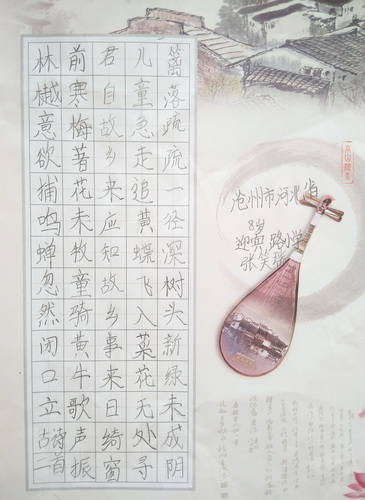 篱落疏疏一径深树头新绿未成阴
儿童急走追黄蝶飞入菜花无处寻
君自故乡来应知故乡事来日绮窗
前寒梅著花未牧童骑黄牛歌声振
林樾意欲捕鸣蝉忽然闭口立古诗二首
沧州市河北省
8岁
路小学
张笑